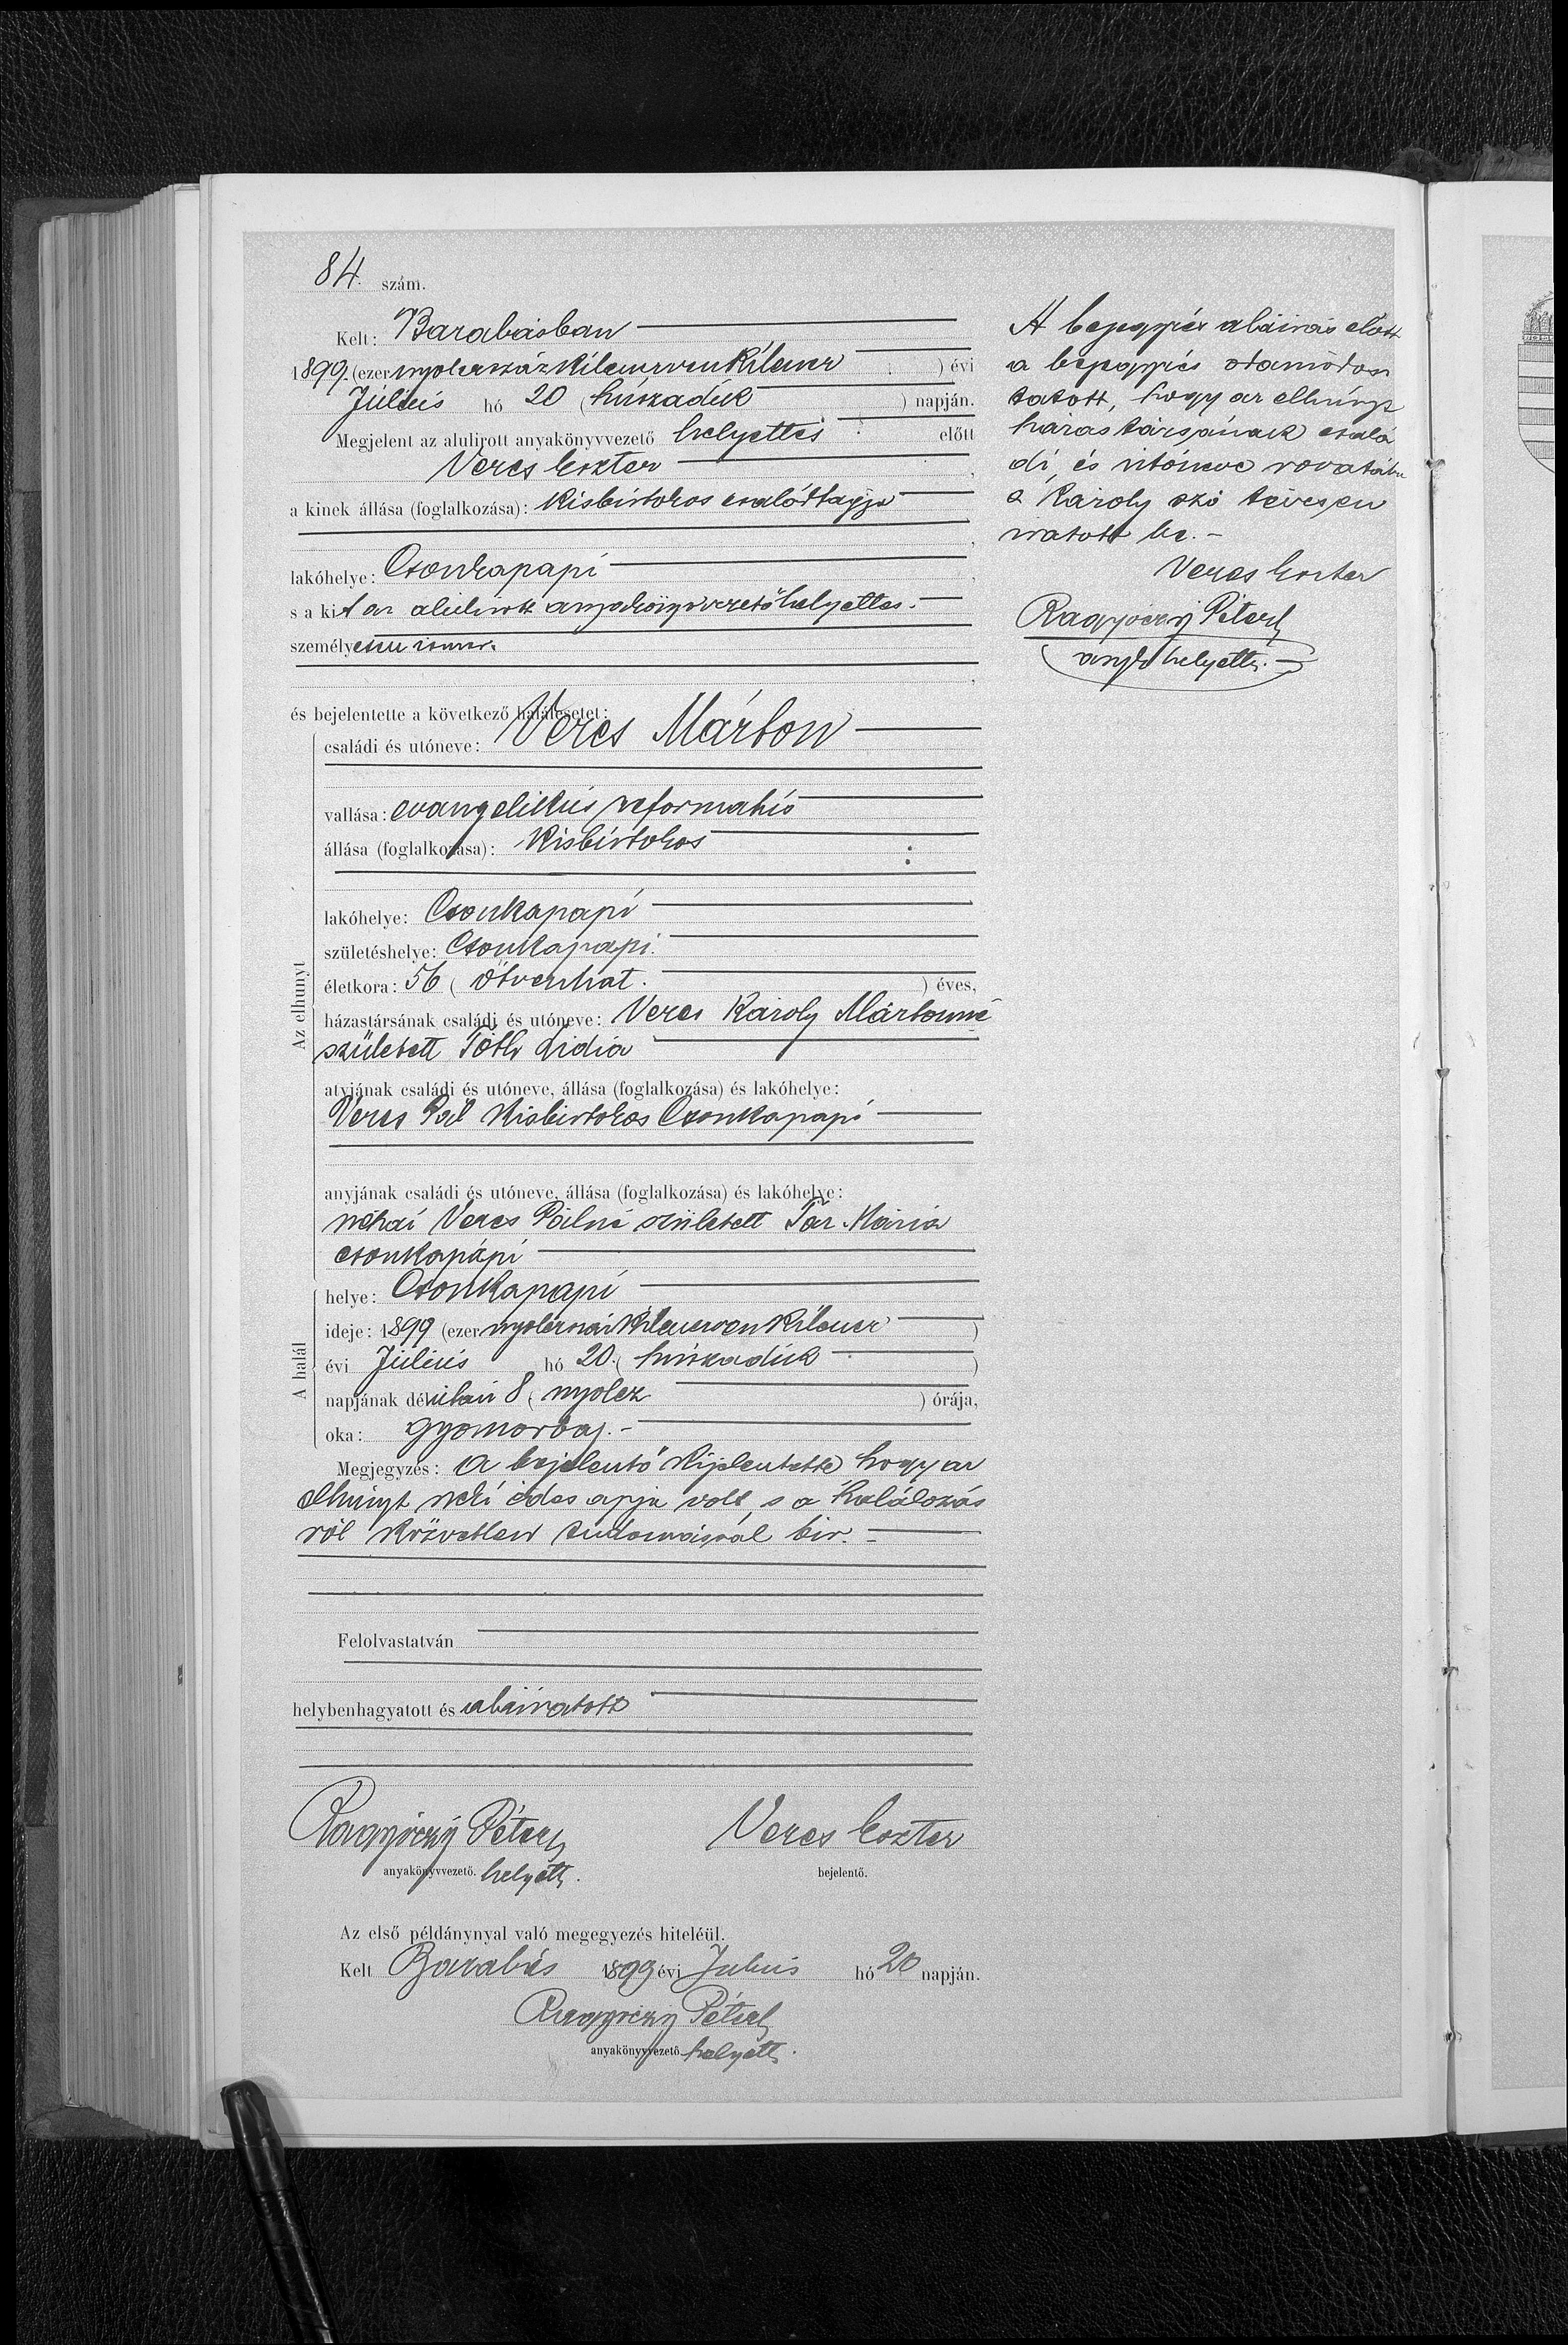 84. szám.
Kelt: Barabásban
1899. (ezer nyolczszáz kilenczven kilencz) évi
Július hó 20 (húszadik) napján.
Megjelent az alulirott anyakönyvvezető helyettes előtt
Veres Eszter
a kinek állása (foglalkozása): kisbirtokos családtagja
lakóhelye: Csonkapapi
s a kit az alulirott anyakönyvvezető helyettes.
személyesen ismer.
és bejelentette a következő halálesetet:
Az elhunyt
családi és utóneve: Veres Márton
vallása: evangelikus reformatus
állása (foglalkozása): Kisbirtokos
lakóhelye: Csonkapapi
születéshelye: Csonkapapi.
életkora: 56 (ötvenhat.) éves,
házastársának családi és utóneve: Veres Károly Mártonné
született Tóth Lidia
atyjának családi és utóneve, állása (foglalkozása) és lakóhelye:
Veres Pál Kisbirtokos Csonkapapi
anyjának családi és utóneve, állása (foglalkozása) és lakóhelye:
néhai Veres Pálné született Tar Mária
csonkapapi
A halál
helye: Csonkapapi
ideje: 1899 (ezer nyolczszáz kilenczven kilencz)
évi Július hó 20. (húszadik)
napjának délután 8 (nyolcz) órája,
oka: gyomorbaj.-
Megjegyzés: A bejelentő kijelentette hogy az
elhúnyt néki édes apja volt, s a halálozás
ról közvetlen tudomással bir. -
Felolvastatván
helybenhagyatott és aláiratott
Ragyóczy Péter Veres Eszter
anyakönyvvezető. helyett. bejelentő.
Az első példánynyal való megegyezés hiteléül.
Kelt Barabás 1899 évi Julius hó 20 napján.
Ragyóczy Péter
anyakönyvvezető helyett.
A bejegyzés aláirás előtt
a bejegyzés odamódosi
tatott, hogy az elhúnyt
házastársának csalá
di, és utóneve rovatába
a Károly szó tévesen
iratott be. -
Veres Eszter
Ragyóczy Péter
anykv helyett. -